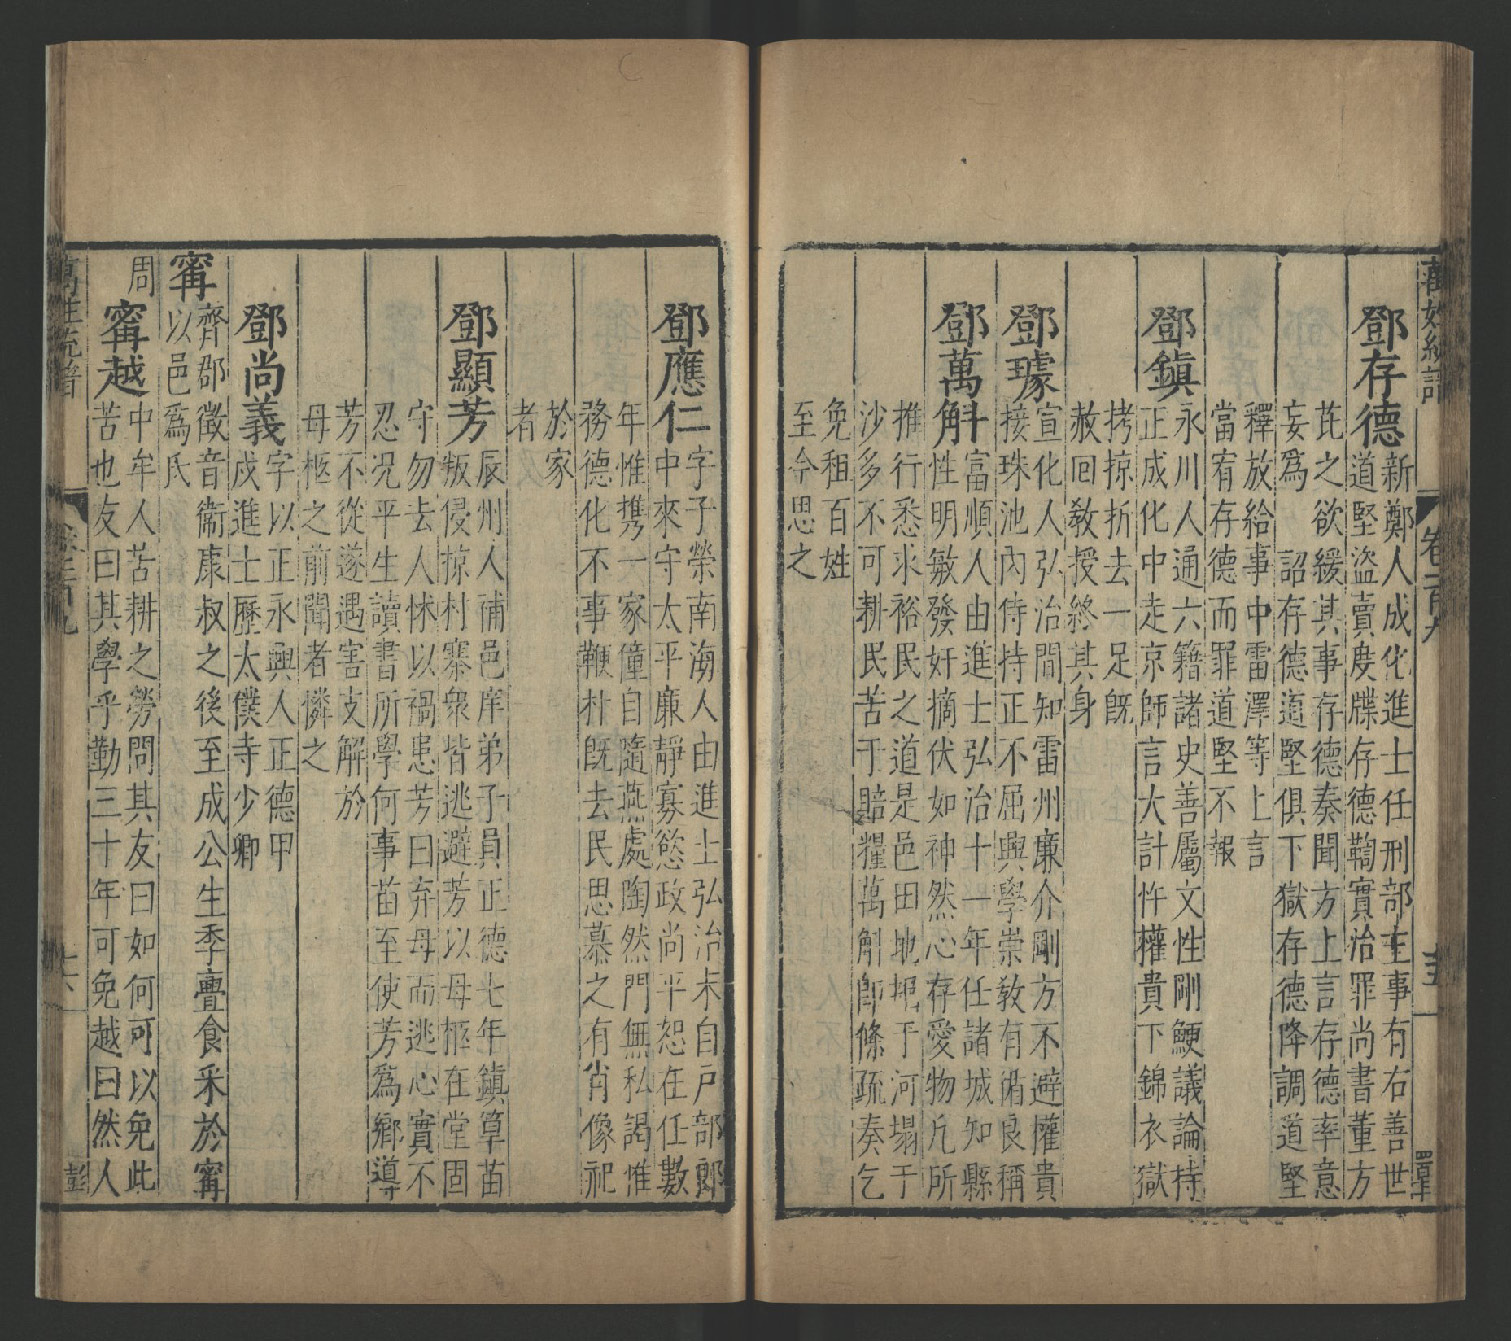 萬姓統譜
卷一百九
十五
鄧存德
新鄭人成化進士任刑部主事有右善世
道堅盜賣度牒存德鞫實治罪尚書董方
芘之欲緩其事存德奏聞方上言存德率意
妄爲 詔存德道堅俱下獄存德降調道堅
釋放給事中雷澤等上言
當宥存德而罪道堅不報
鄧鎮
永川人通六籍諸史善屬文性剛鯁議論持
正成化中走京師言大計忤權貴下錦衣獄
拷掠折去一足旣
赦回敎授終其身
鄧璩
宣化人弘治間知雷州廉介剛方不避權貴
接珠池內侍持正不屈興學崇敎有循良稱
鄧萬斛
富順人由進士弘治十一年任諸城知縣
性明敏發奸摘伏如神然心存愛物凡所
推行悉求裕民之道是邑田地圯于河塌于
沙多不可耕民苦于賠糧萬斛卽條疏奏乞
免租百姓
至今思之
鄧應仁
字子榮南海人由進士弘治末自戶部郎
中來守太平廉靜寡慾政尚平恕在任數
年惟携一家僮自隨燕處陶然門無私謁惟
務德化不事鞭朴旣去民思慕之有肖像祀
於家
者
鄧顯芳
辰州人補邑庠弟子員正德七年鎮箄苗
叛侵掠村寨衆皆逃避芳以母柩在堂固
守勿去人怵以禍患芳曰弃母而逃心實不
忍况平生讀書所學何事苗至使芳爲鄉導
芳不從遂遇害支解於
母柩之前聞者憐之
鄧尚義
字以正永興人正德甲
戌進士歷太僕寺少卿
甯
齊郡徵音衞康叔之後至成公生季亹食采於甯
以邑爲氏
周
甯越
中牟人苦耕之勞問其友曰如何可以免此
苦也友曰其學乎勤三十年可免越曰然人
萬姓統譜
卷一百九
十六
彭